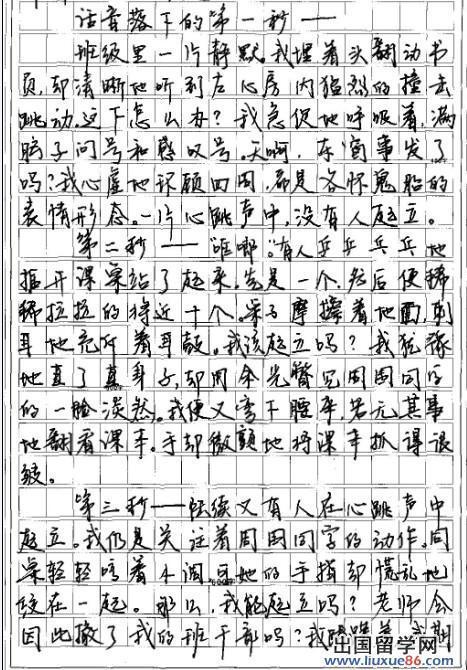 话音落下的第一秒——
班级里一片静默。我埋着头翻动书
页,却清晰地听到左心房内猛烈的撞击
跳动。这下怎么办?我急促地呼吸着,满
脑子问号和感叹号。天啊,东窗事发了
吗?我心虚地环顾四周,都是各怀鬼胎的
表情形态。一片心跳声中,没有人起立。
第二秒——“哐啷”。有人乒乒乓乓地
拒开课桌站了起来。先是一个,然后便稀
稀拉拉的将近十个。桌子摩擦着地面,刺
耳地充斥着耳鼓。我该起立吗?我犹豫
地直了直身子,却用余光瞥见周围同学
的一脸淡然。我便又弯下腰来,若无其事
地翻看课本。手却微颤地将课本抓得很
皱。
第三秒——陆续又有人在心跳声中
起立。我仍是关注着周围同学的动作。同
桌轻轻哼着小调,可她的手指却慌乱地
绞在一起。那么,我能起立吗?老师会
因此撤了我的班干部吗?我
出国留学网
www.liuxue86.com